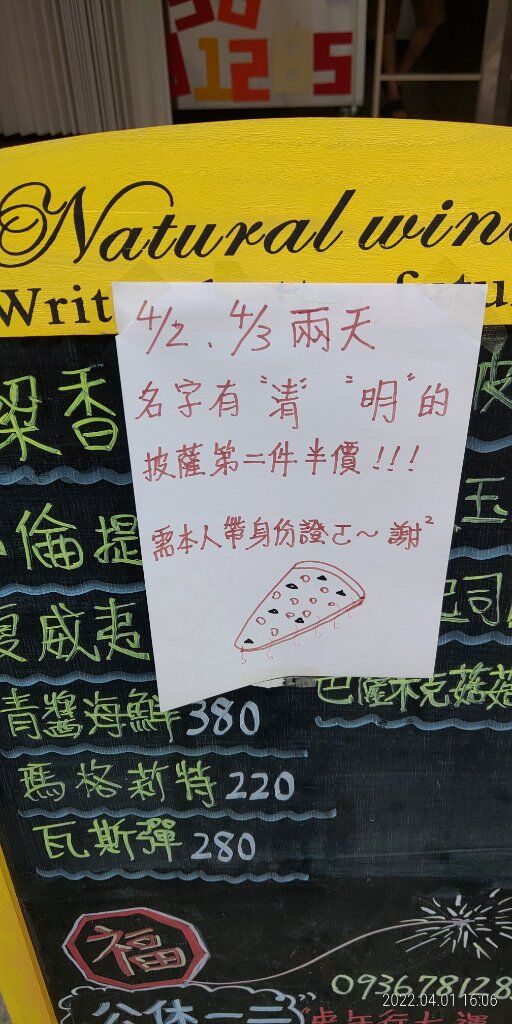 12 5
Natural win
Writ
4/2、4/3 兩天
名字有"清" "明"的
披薩第二件半價!!!
需本人帶身份證正~謝²
香
倫提
夏威夷
青醬海鮮 380
瑪格新特 220
瓦斯彈 280
玉
起司
巴薩米克菇菇
福
093678128
公休一二
虎年行大運
2022.04.01 16:06